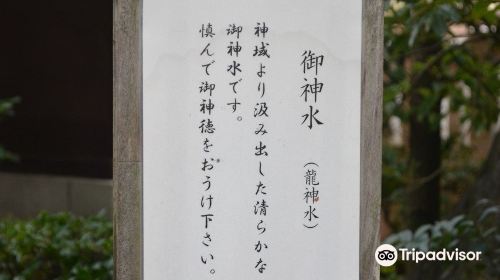 御神水（龍神水）
神域より汲み出した清らかな
御神水です。
慎んで御神徳をおうけ下さい。
Tripadvisor